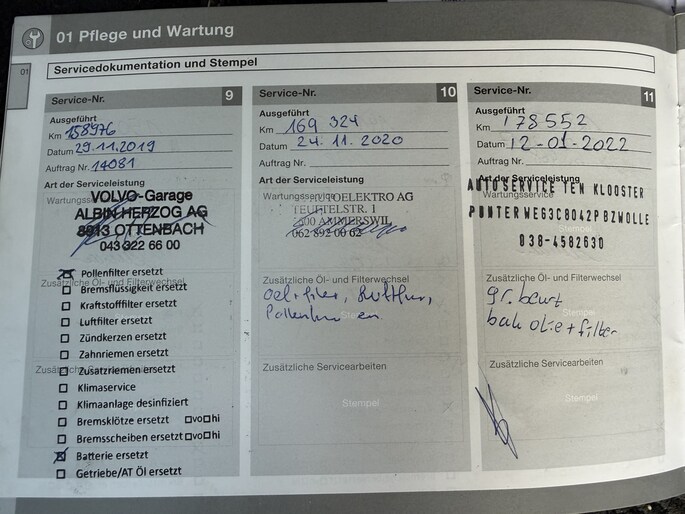 01 Pflege und Wartung
01
Servicedokumentation und Stempel
Service-Nr. 9
Ausgeführt
Km 158976
Datum 29.11.2019
Auftrag Nr. 14081
Art der Serviceleistung
Wartungsservice
VOLVO-Garage
ALBIN HERZOG AG
8913 OTTENBACH
043 322 66 00
Zusätzliche Öl- und Filterwechsel
Pollenfilter ersetzt
Bremsflüssigkeit ersetzt
Kraftstofffilter ersetzt
Luftfilter ersetzt
Zündkerzen ersetzt
Zahnriemen ersetzt
Zusatzriemen ersetzt
Klimaservice
Klimaanlage desinfiziert
Bremsklötze ersetzt vo hi
Bremsscheiben ersetzt vo hi
Batterie ersetzt
Getriebe/AT Öl ersetzt
Service-Nr. 10
Ausgeführt
Km 169 324
Datum 24.11.2020
Auftrag Nr.
Art der Serviceleistung
Wartungsservice
AUTOELEKTRO AG
TEUFTELSTR. 1
AMMERSWIL
062 892 00 62
Zusätzliche Öl- und Filterwechsel
Zusätzliche Servicearbeiten
Stempel
Service-Nr. 11
Ausgeführt
Km 178552
Datum 12-01-2022
Auftrag Nr.
Art der Serviceleistung
AUTOSERVICE TEN KLOOSTER
PUNTERWEG3C8042PBZWOLLE
038-4582630
Zusätzliche Öl- und Filterwechsel
gr. beurt
Stempel
olie + filter
Zusätzliche Servicearbeiten
Stempel